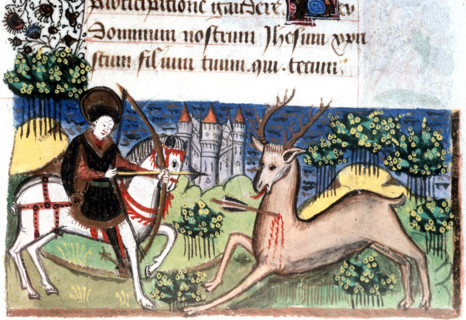 participatione gaudere Per
Dominum nostrum Jhesum xpri
stum filium tuum. qui tecum.